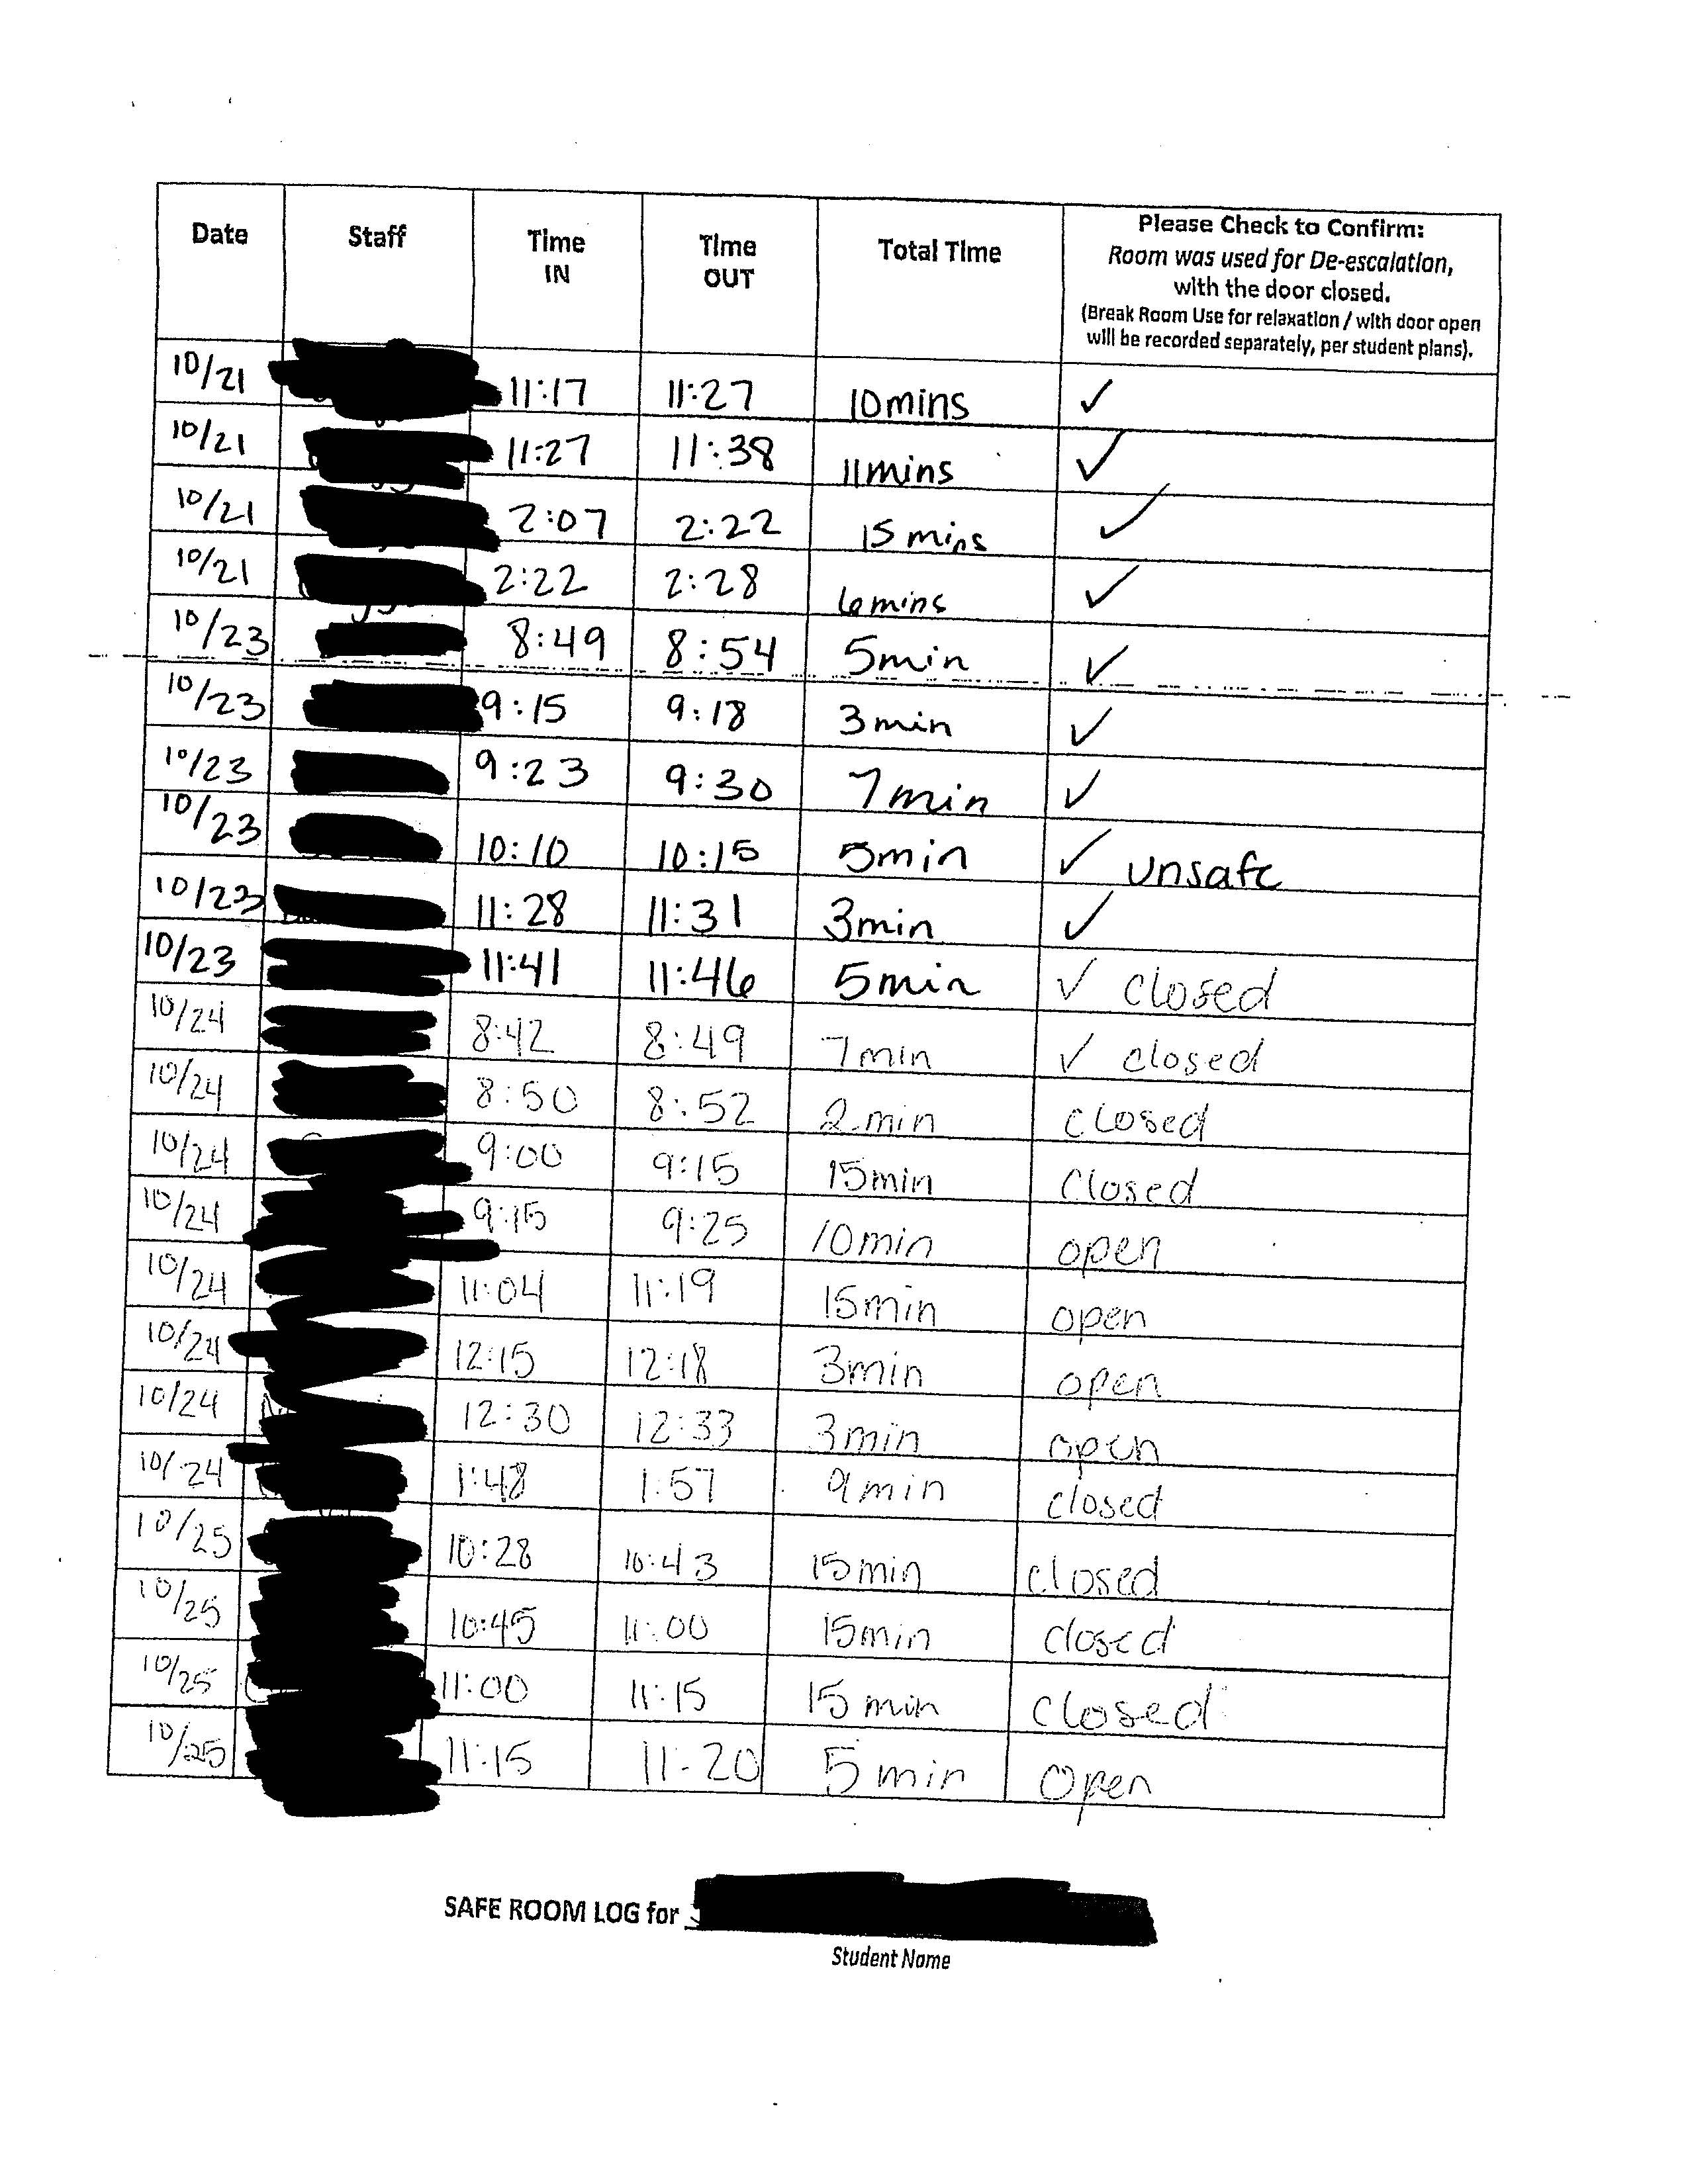 Date Staff Time IN Time OUT Total Time Please Check to Confirm:
Room was used for De-escalation,
with the door closed.
(Break Room Use for relaxation / with door open
will be recorded separately, per student plans).
10/21 11:17 11:27 10mins ✓
10/21 11:27 11:38 11mins ✓
10/21 2:07 2:22 15 mins ✓
10/21 2:22 2:28 6mins ✓
10/23 8:49 8:54 5min ✓
10/23 9:15 9:18 3min ✓
10/23 9:23 9:30 7min ✓
10/23 10:10 10:15 5min ✓ unsafe
10/23 11:28 11:31 3min ✓
10/23 11:41 11:46 5min ✓ closed
10/24 8:42 8:49 7min ✓ closed
10/24 8:50 8:52 2min closed
10/24 9:00 9:15 15min closed
10/24 9:15 9:25 10min open
10/24 11:04 11:19 15min open
10/24 12:15 12:18 3min open
10/24 12:30 12:33 3min open
10/24 1:48 1:57 9min closed
10/25 10:28 10:43 15min closed
10/25 10:45 11:00 15min closed
10/25 11:00 11:15 15 min closed
10/25 11:15 11:20 5 min open
SAFE ROOM LOG for
Student Name